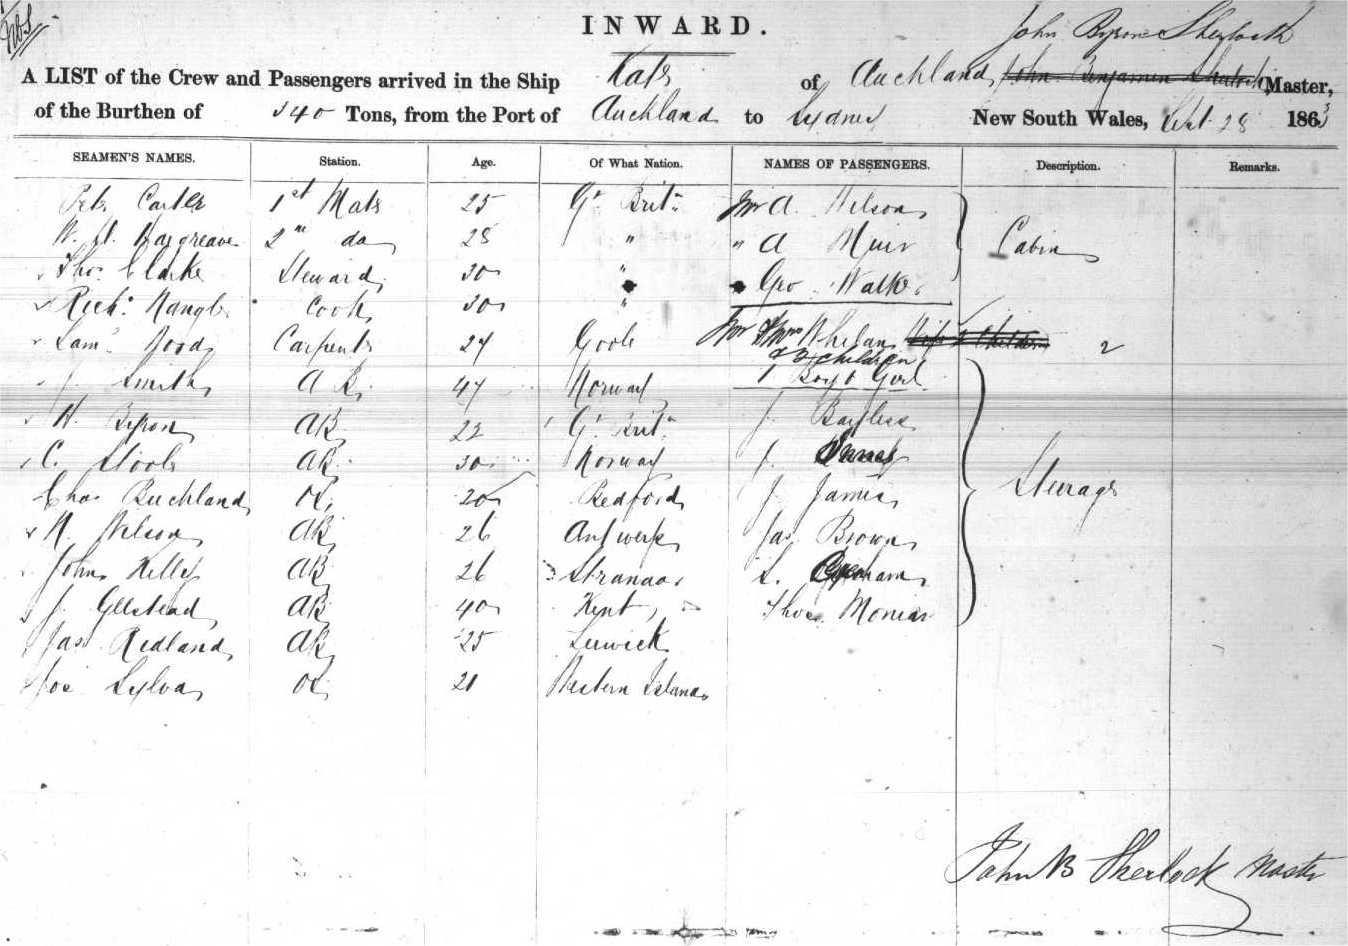 INWARD.
John Byron Sherlock
A LIST of the Crew and Passengers arrived in the Ship Kate of Auckland, John Benjamin Sherlock Master,
of the Burthen of 340 Tons, from the Port of Auckland to Sydney New South Wales, Sept 28 1863
SEAMEN'S NAMES. Station. Age. Of What Nation. NAMES OF PASSENGERS. Description. Remarks.
Carter 1st Mate 25 Gt Britn Mr A. Wilson
W. H. Hargreave 2nd do 28 " " A Muir Cabin
Thos Clarke Steward 30 " " Geo Walker
Richd Nangle Cook 30 "
Saml Carpentr 27 Goole Mr & Mrs Whelan 2
& 2 children
J. Smith AB 47 Norway 1 Boy & Girl
H. Byron AB 22 Gt Britn J. Bayless
C. AB 30 Norway J.
Chas Buckland OS 20 Bedford J. James Steerage
N. Nelson AB 26 Antwerp Jas Brown
John Kelly AB 26 Stranaar
J. AB 40 Kent Thos
Jas Redland AB 25 Lerwick
Joe Sylva OS 21 Western Islands
John B Sherlock Master